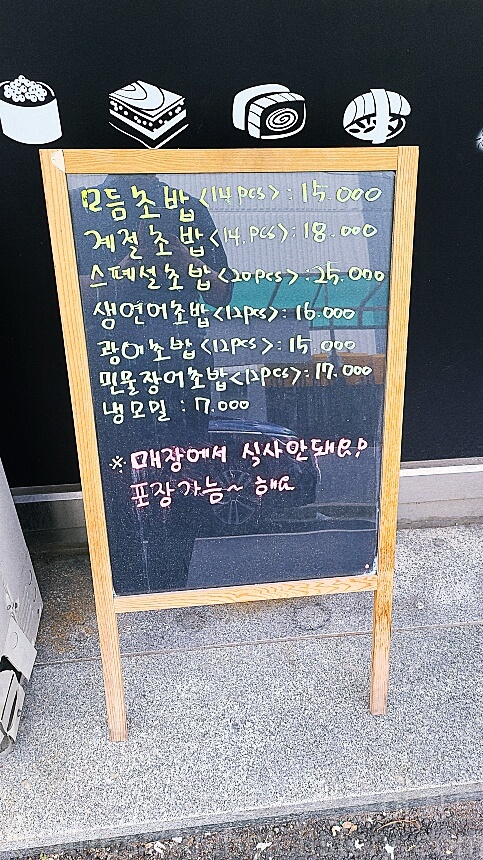 모듬초밥<14pcs>: 15.000
계절초밥<14.pcs>: 18.000
스페셜초밥<20pcs>: 25.000
생연어초밥<12pcs>: 16.000
광어초밥<12pcs>: 15.000
민물장어초밥<12pcs>: 17.000
냉모밀 : 7.000
※ 매장에서 식사안돼요?
포장가능~ 해요